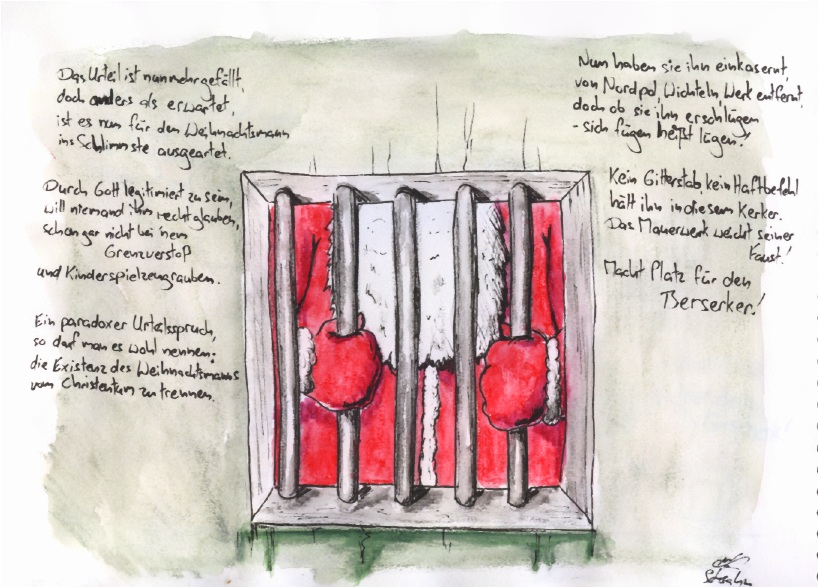 Das Urteil ist nunmehr gefällt,
doch anders als erwartet,
ist es nun für den Weihnachtsmann
ins Schlimmste ausgeartet.
Durch Gott legitimiert zu sein,
will niemand ihm recht glauben,
schon gar nicht bei 'nem
Grenzverstoß
und Kinderspielzeugrauben.
Ein paradoxer Urteilsspruch,
so darf man es wohl nennen:
die Existenz des Weihnachtsmanns
vom Christentum zu trennen.
Nun haben sie ihn einkasernt,
von Nordpol, Wichteln, Werk entfernt,
doch ob sie ihn erschlügen
- sich fügen heißt lügen!
Kein Gitterstab, kein Haftbefehl
hält ihn in diesem Kerker.
Das Mauerwerk weicht seiner
Faust!
Macht Platz für den
Berserker!